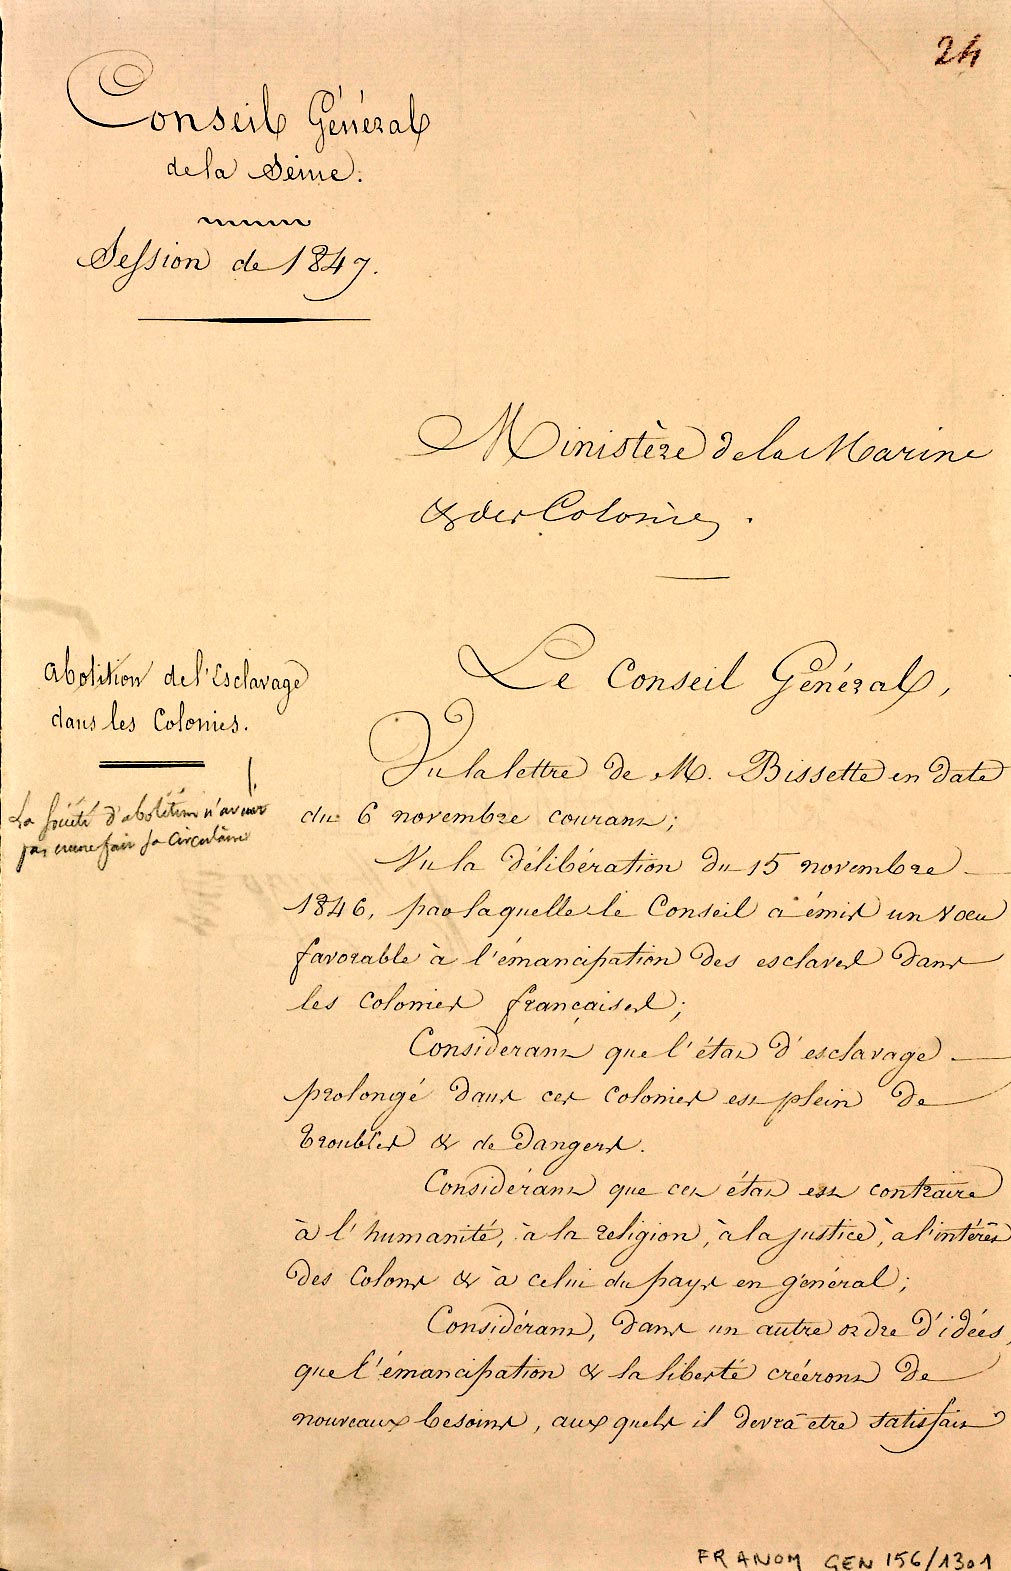 24
Conseil Général
de la Seine.
Session de 1847.
Ministère de la Marine
& des Colonies.
Abolition de l'Esclavage
dans les Colonies.
La Société d'abolition n'avait
pas encore fait sa circulaire
Le Conseil Général,
Vu la lettre de M. Bissette en date
du 6 novembre courant;
Vu la délibération du 15 novembre
1846, par laquelle le Conseil a émis un vœu
favorable à l'émancipation des esclaves dans
les colonies françaises;
Considerant que l'état d'esclavage
prolongé dans ces colonies est plein de
troubles & de dangers.
Considérant que cet état est contraire
à l'humanité, à la religion, à la justice, à l'intérêt
des colons & à celui du pays en général;
Considérant, dans un autre ordre d'idées,
que l'émancipation & la liberté créeront de
nouveaux besoins, auxquels il devra etre satisfait
FR ANOM GEN 156/1301